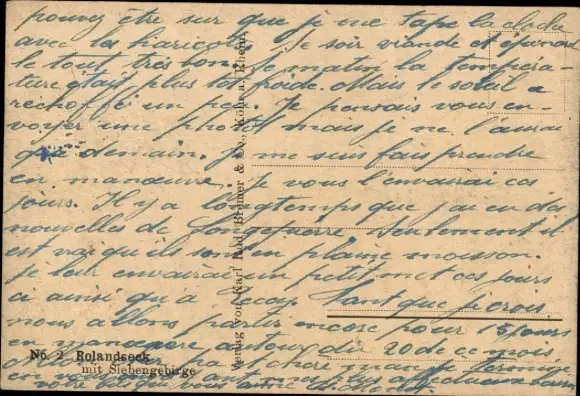 pouvez être sur que je me tape la cloche
avec les haricots. Ce soir viande et épinard
le tout très bon. Ce matin la tempéra-
ture était plus tot froide. Mais le soleil a
réchoffé un peu. Je pensais vous en-
voyer une photo mais je ne l'aurai
que demain. Je me suis fais prendre
en manœuvre. Je vous l'envairai ces
jours. Il y a longtemps que j'ai eu des
nouvelles de Seulement il
est vrai qu'ils sont en pleine moisson.
Je leur envairai un petit mot ces jours
ci ainsi qu'à Tant que je crois
nous allons partir encore pour 15 jours
en manœuvre autour du 20 de ce mois
je termine
en vous
votre qui vous aime
Verlag von Karl Rud. Bremer & Co., Köln a. Rhein.
No. 2 Rolandseck
mit Siebengebirge